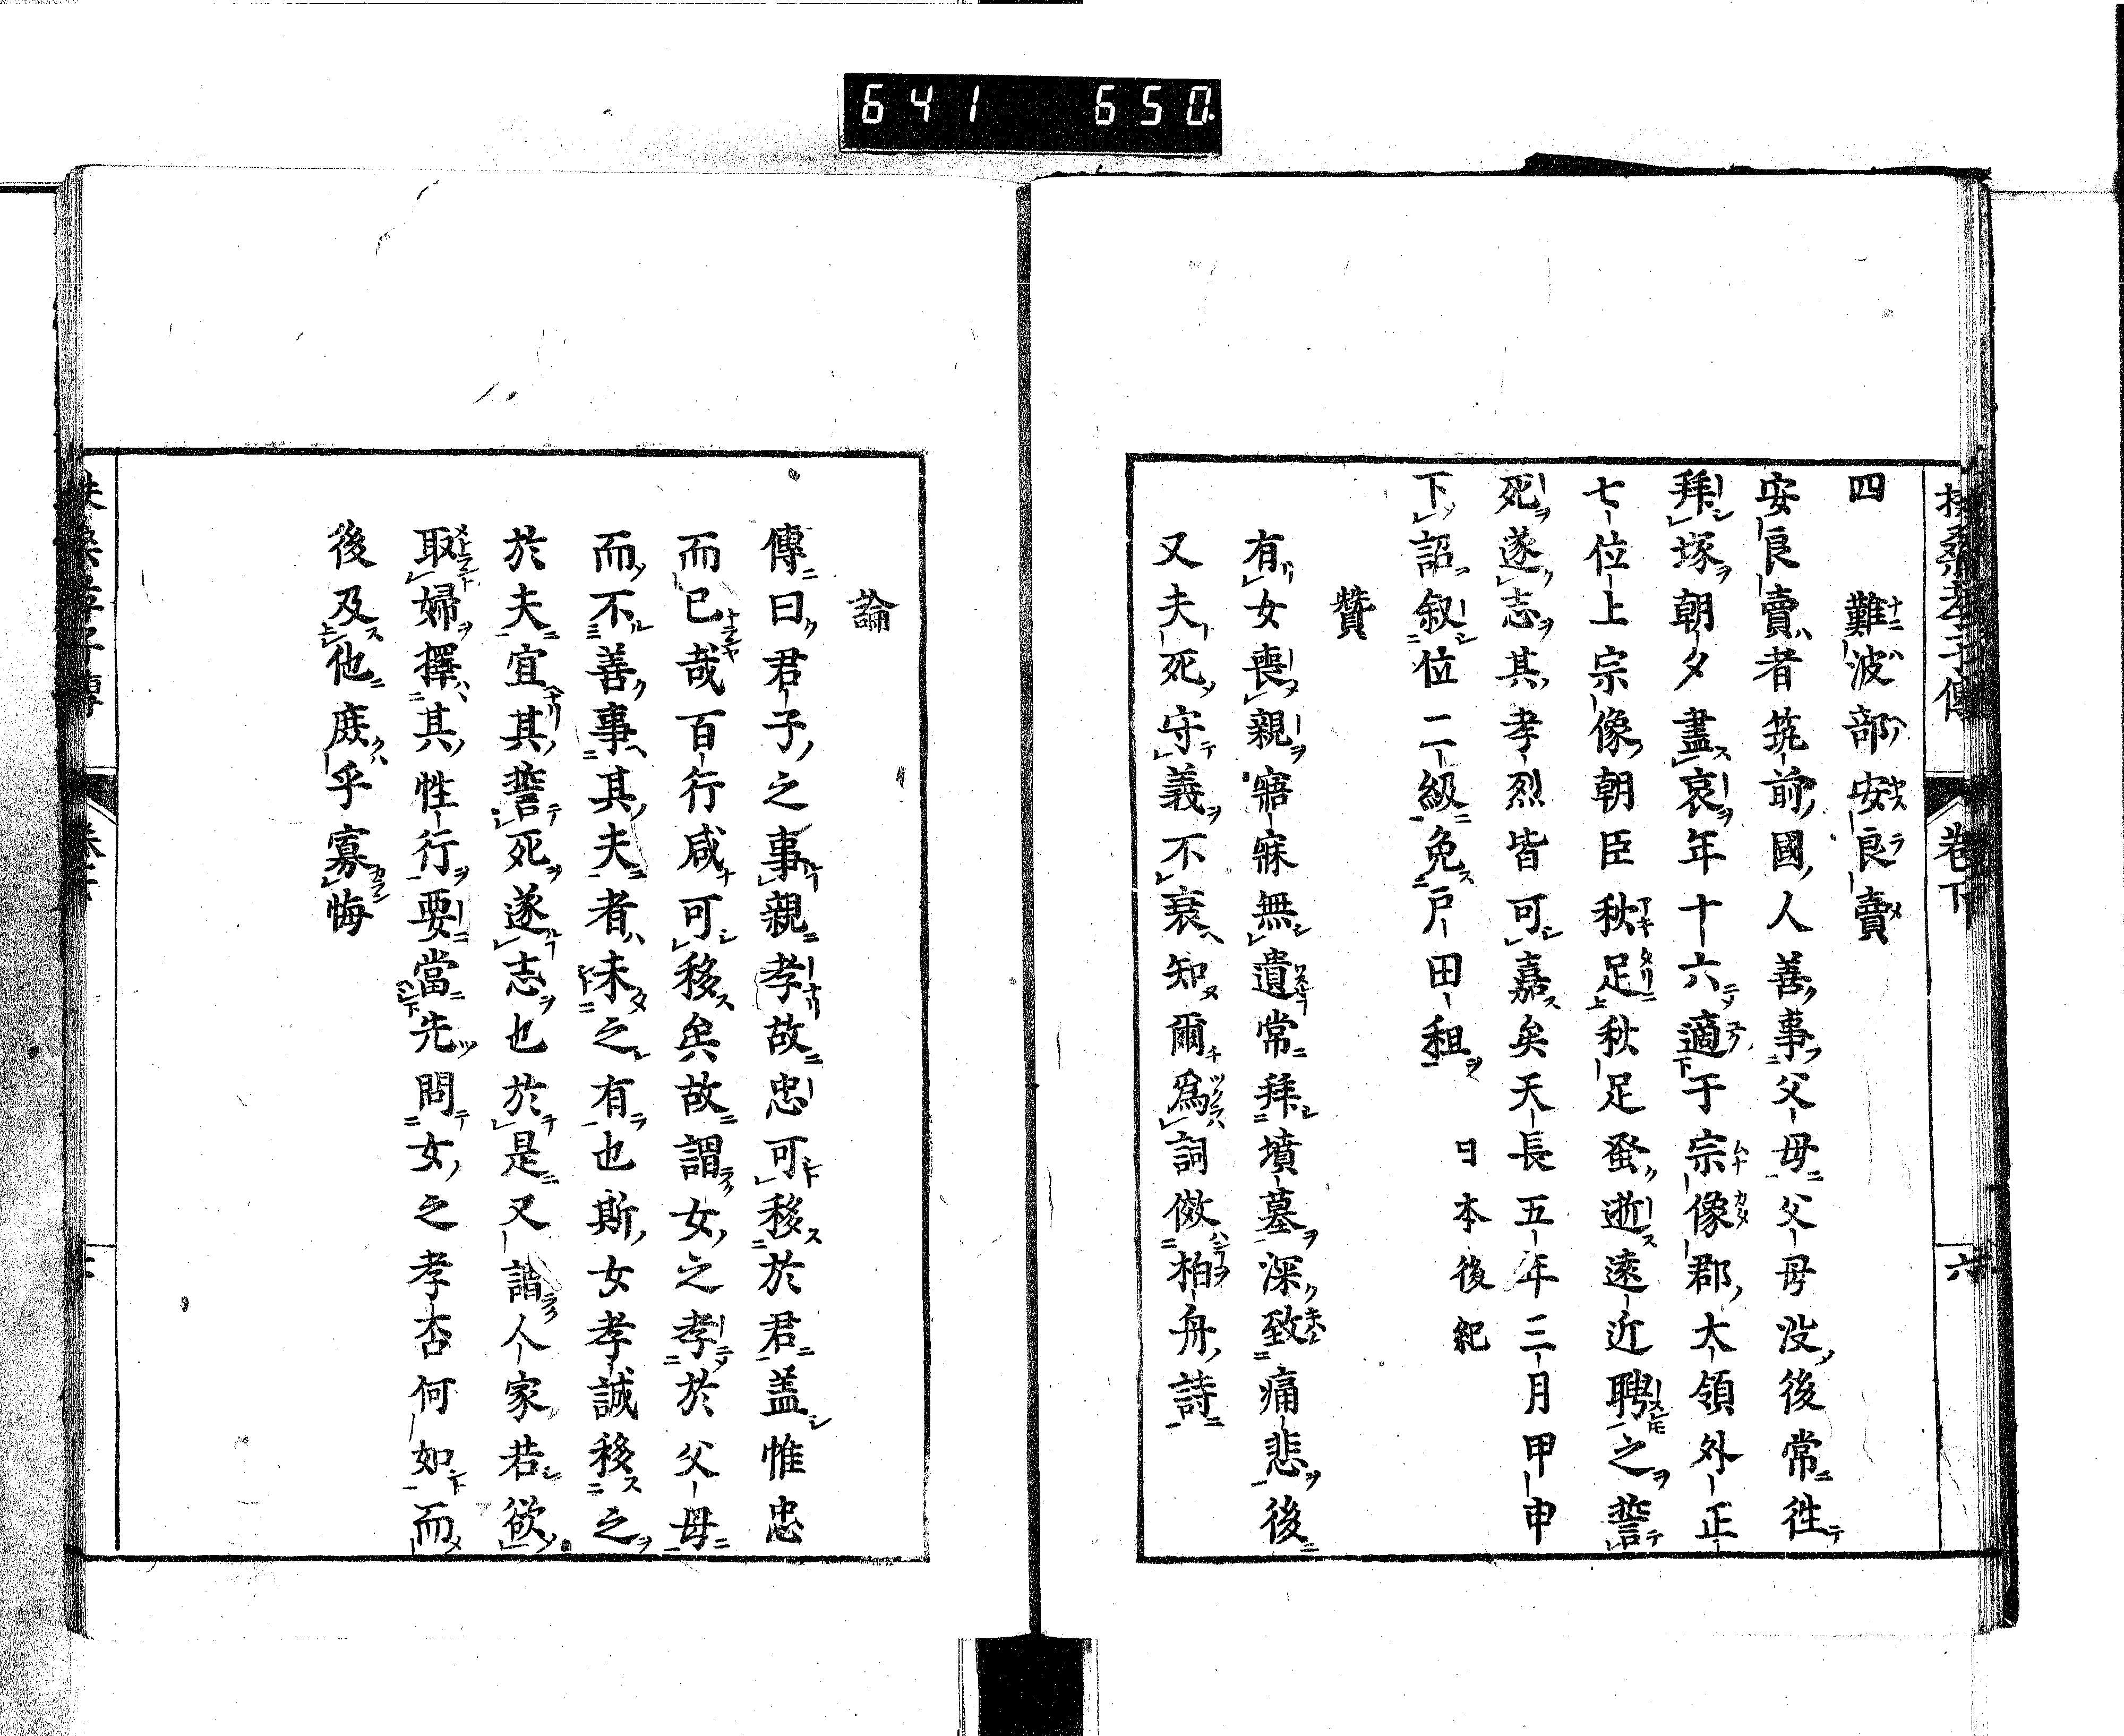 641 650.
扶桑孝子傳 卷下 六
四 難波部安良賣
安良賣者筑前國人善事父母父母沒後常往
拜塚朝夕盡哀年十六適于宗像郡大領外正
七位上宗像朝臣秋足秋足蚤逝遠近聘之誓
死遂志其孝烈皆可嘉矣天長五年三月甲申
下詔叙位二級免戸田租 日本後紀
贊
有女喪親寤寐無遺常拜墳墓深致痛悲後
又夫死守義不衰知爾爲詞傚柏舟詩
論
傳曰君子之事親孝故忠可移於君盖惟忠
而已哉百行咸可移矣故謂女之孝於父母
而不善事其夫者未之有也斯女孝誠移之
於夫宜其誓死遂志也於是又諧人家若欲
取婦擇其性行要當先問女之孝否何如而
後及他庶乎寡悔